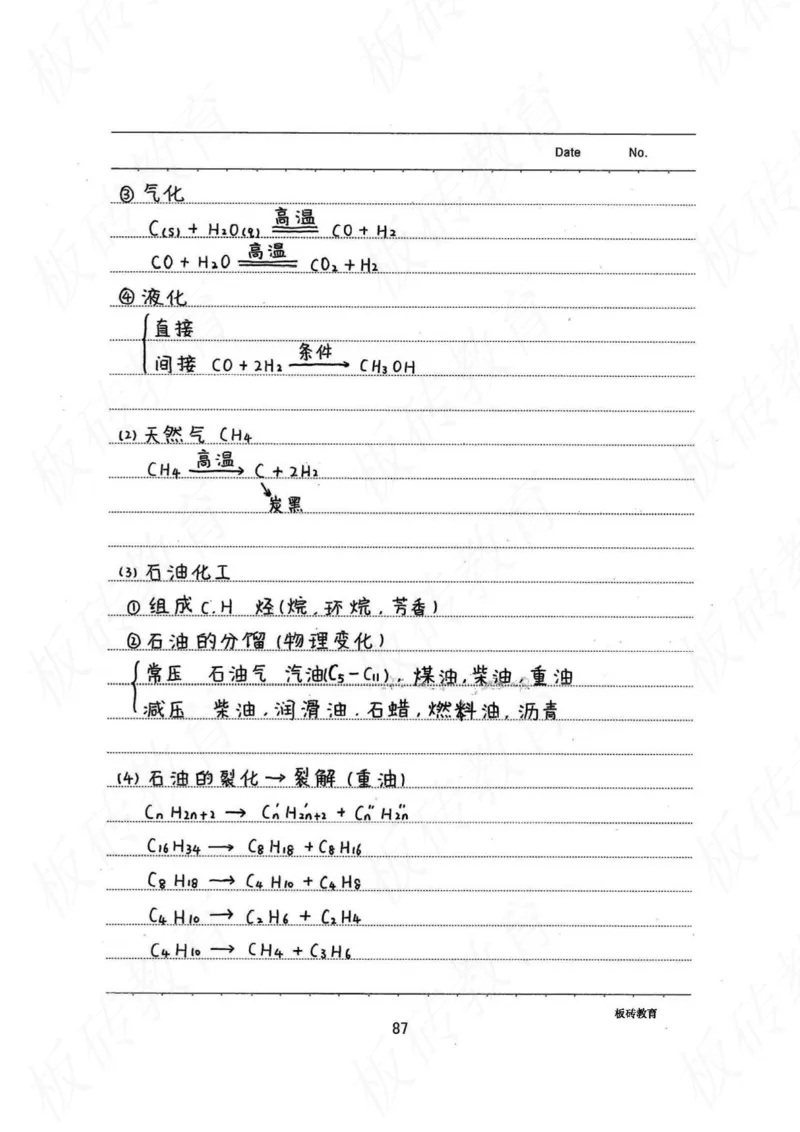 Date No.
③ 气化
C(s) + H2O(g) 高温 CO + H2
CO + H2O 高温 CO2 + H2
④ 液化
直接
间接 CO + 2H2 条件→ CH3OH
(2) 天然气 CH4
CH4 高温→ C + 2H2
炭黑
(3) 石油化工
① 组成 C.H 烃(烷.环烷.芳香)
② 石油的分馏(物理变化)
常压 石油气 汽油(C5-C11), 煤油,柴油,重油
减压 柴油.润滑油.石蜡,燃料油,沥青
(4) 石油的裂化→裂解(重油)
CnH2n+2 → Cn'H2n'+2 + Cn''H2n''
C16H34 → C8H18 + C8H16
C8H18 → C4H10 + C4H8
C4H10 → C2H6 + C2H4
C4H10 → CH4 + C3H6
板砖教育
87